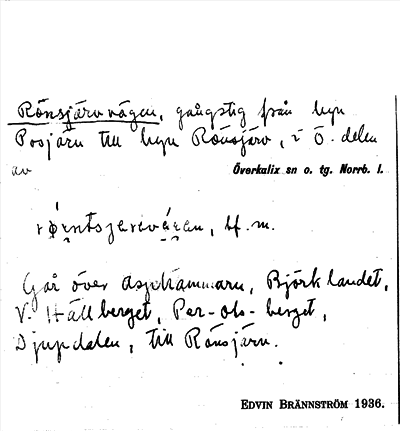 Rönsjärvvägen, gångstig från byn
Posjärv till byn Rönsjärv, i Ö. delen
av
Överkalix sn o. tg. Norrb. l.
bf. m.
Går över Asphammarn, Björklandet,
V. Hällberget, Per-Ols-berget,
Djupdalen, till Rönsjärv.
EDVIN BRÄNNSTRÖM 1936.